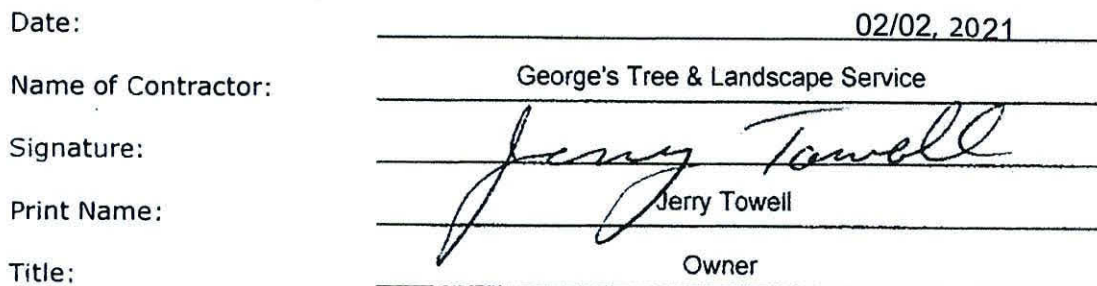 Date: 02/02, 2021
Name of Contractor: George's Tree & Landscape Service
Signature: Jerry Towell
Print Name: Jerry Towell
Title: Owner